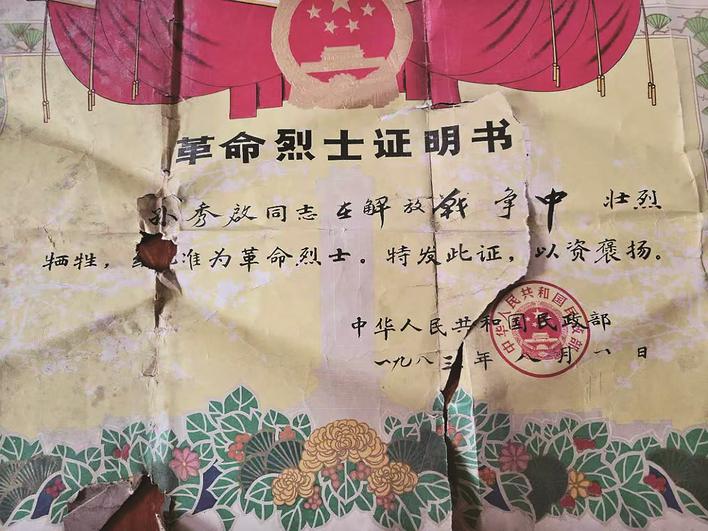 革命烈士证明书
孙秀启同志在解放战争中 壮烈
牺牲，准为革命烈士。特发此证，以资褒扬。
中华人民共和国民政部
一九八三年八月一日
中华人民共和国民政部